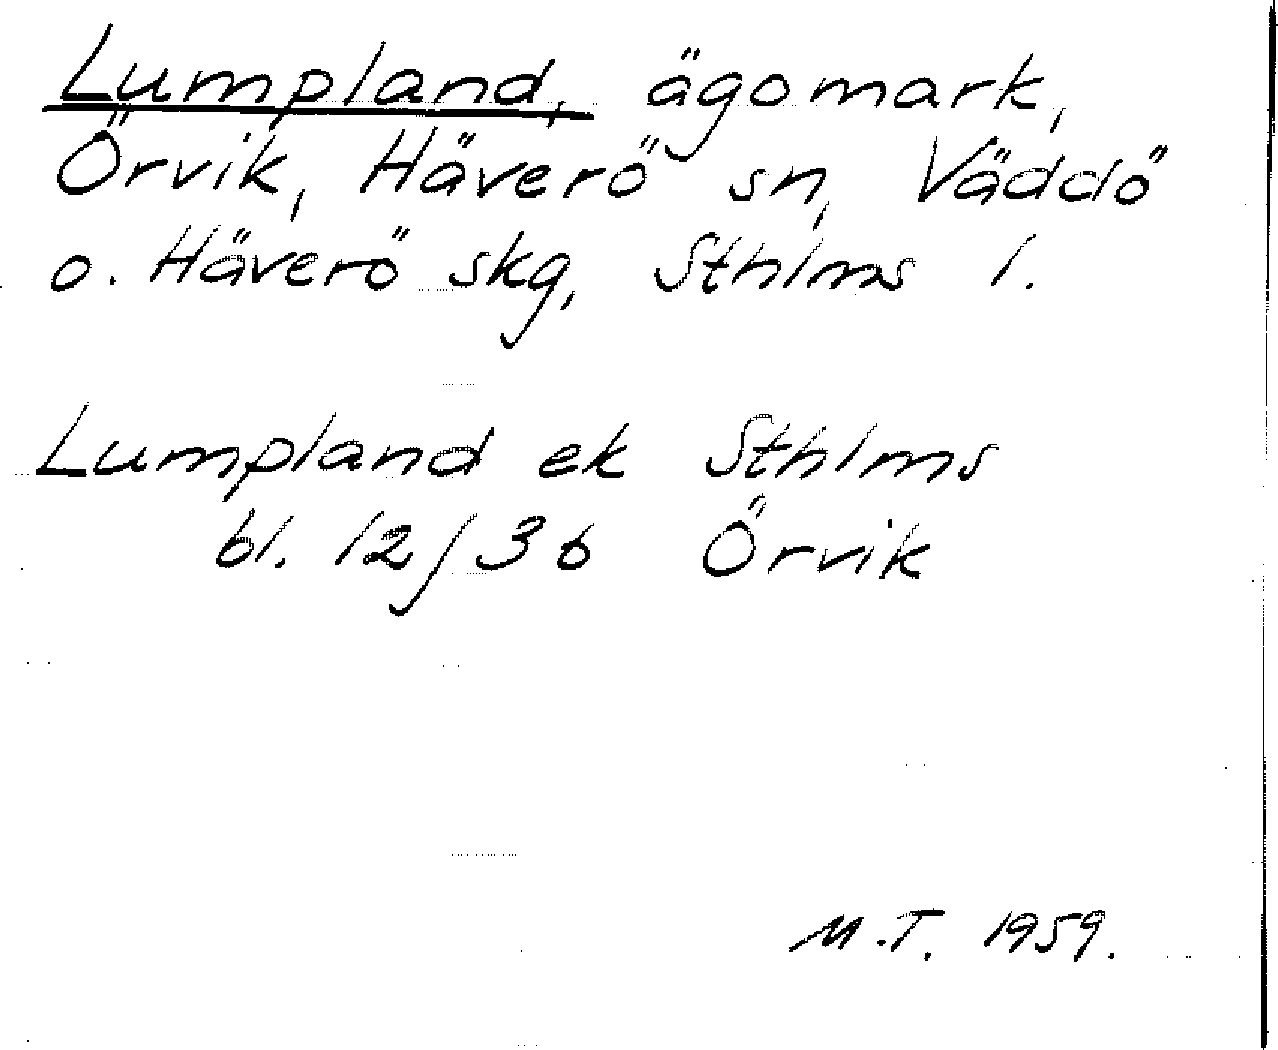 Lumpland, ägomark,
Örvik, Häverö sn, Väddö
o. Häverö skg, Sthlms l.
Lumpland ek Sthlms
bl. 12/36 Örvik
M.T. 1959.